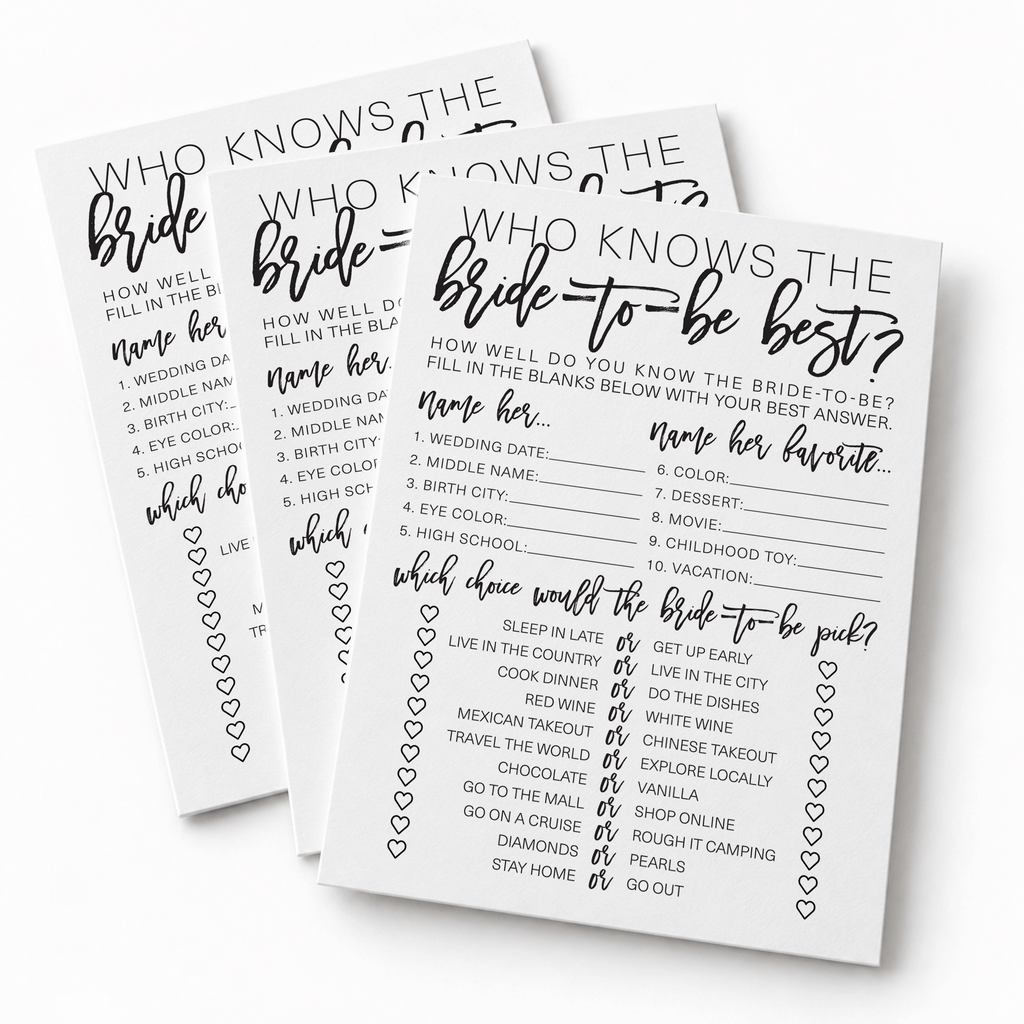 WHO KNOWS THE
bride
HOW WELL
FILL IN THE
name her
1. WEDDING
2. MIDDLE
3. BIRTH CITY:
4. EYE COLOR:
5. HIGH
which
LIVE
WHO KNOWS THE
bride=
HOW WELL
FILL IN THE
name her..
1. WEDDING
2. MIDDLE
3. BIRTH CITY:
4. EYE
5. HIGH
which
WHO KNOWS THE
bride-to-be best?
HOW WELL DO YOU KNOW THE BRIDE-TO-BE?
FILL IN THE BLANKS BELOW WITH YOUR BEST ANSWER.
name her...
1. WEDDING DATE:
2. MIDDLE NAME:
3. BIRTH CITY:
4. EYE COLOR:
5. HIGH SCHOOL:
name her favorite...
6. COLOR:
7. DESSERT:
8. MOVIE:
9. CHILDHOOD TOY:
10. VACATION:
which choice would the bride-to-be pick?
SLEEP IN LATE or GET UP EARLY
LIVE IN THE COUNTRY or LIVE IN THE CITY
COOK DINNER or DO THE DISHES
RED WINE or WHITE WINE
MEXICAN TAKEOUT or CHINESE TAKEOUT
TRAVEL THE WORLD or EXPLORE LOCALLY
CHOCOLATE or VANILLA
GO TO THE MALL or SHOP ONLINE
GO ON A CRUISE or ROUGH IT CAMPING
DIAMONDS or PEARLS
STAY HOME or GO OUT